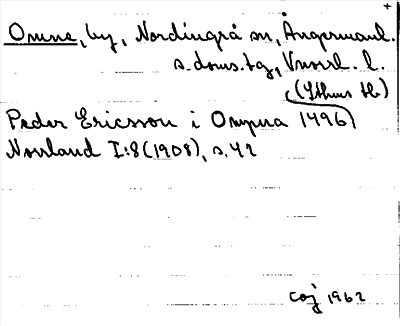 +
Omne, by, Nordingrå sn, Ångermanl.
s. doms.tg, Vnorrl. l.
(Ythus tb)
Peder Ericsson i Ompna 1496
Norrland I:8 (1908), s. 42
COJ 1962